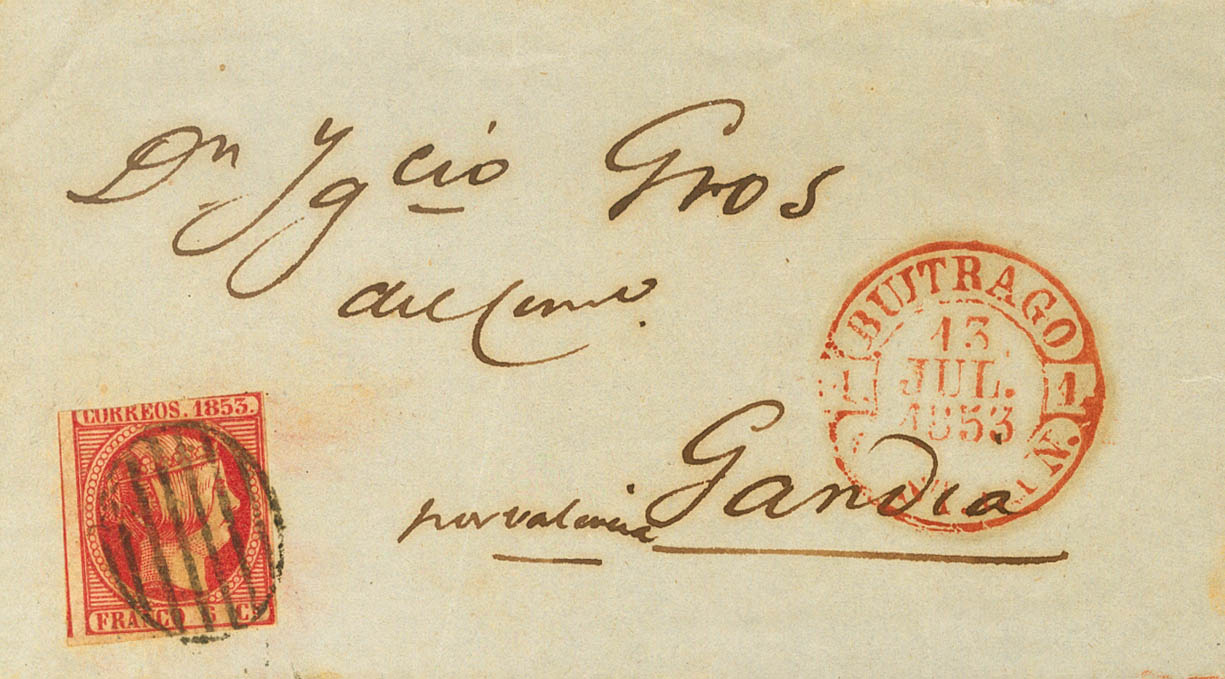 Dn Ygcio Gros
del Com.o
BUITRAGO
1 13 1
JUL.
1853
por valencia Gandia
CORREOS. 1853.
FRANCO 6 Cs